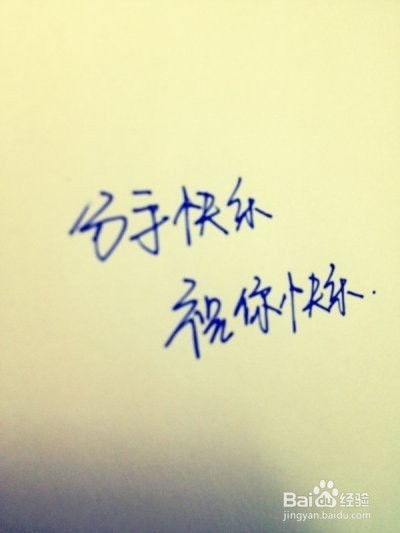 分手快乐
祝你快乐.
Baidu经验
jingyan.baidu.com